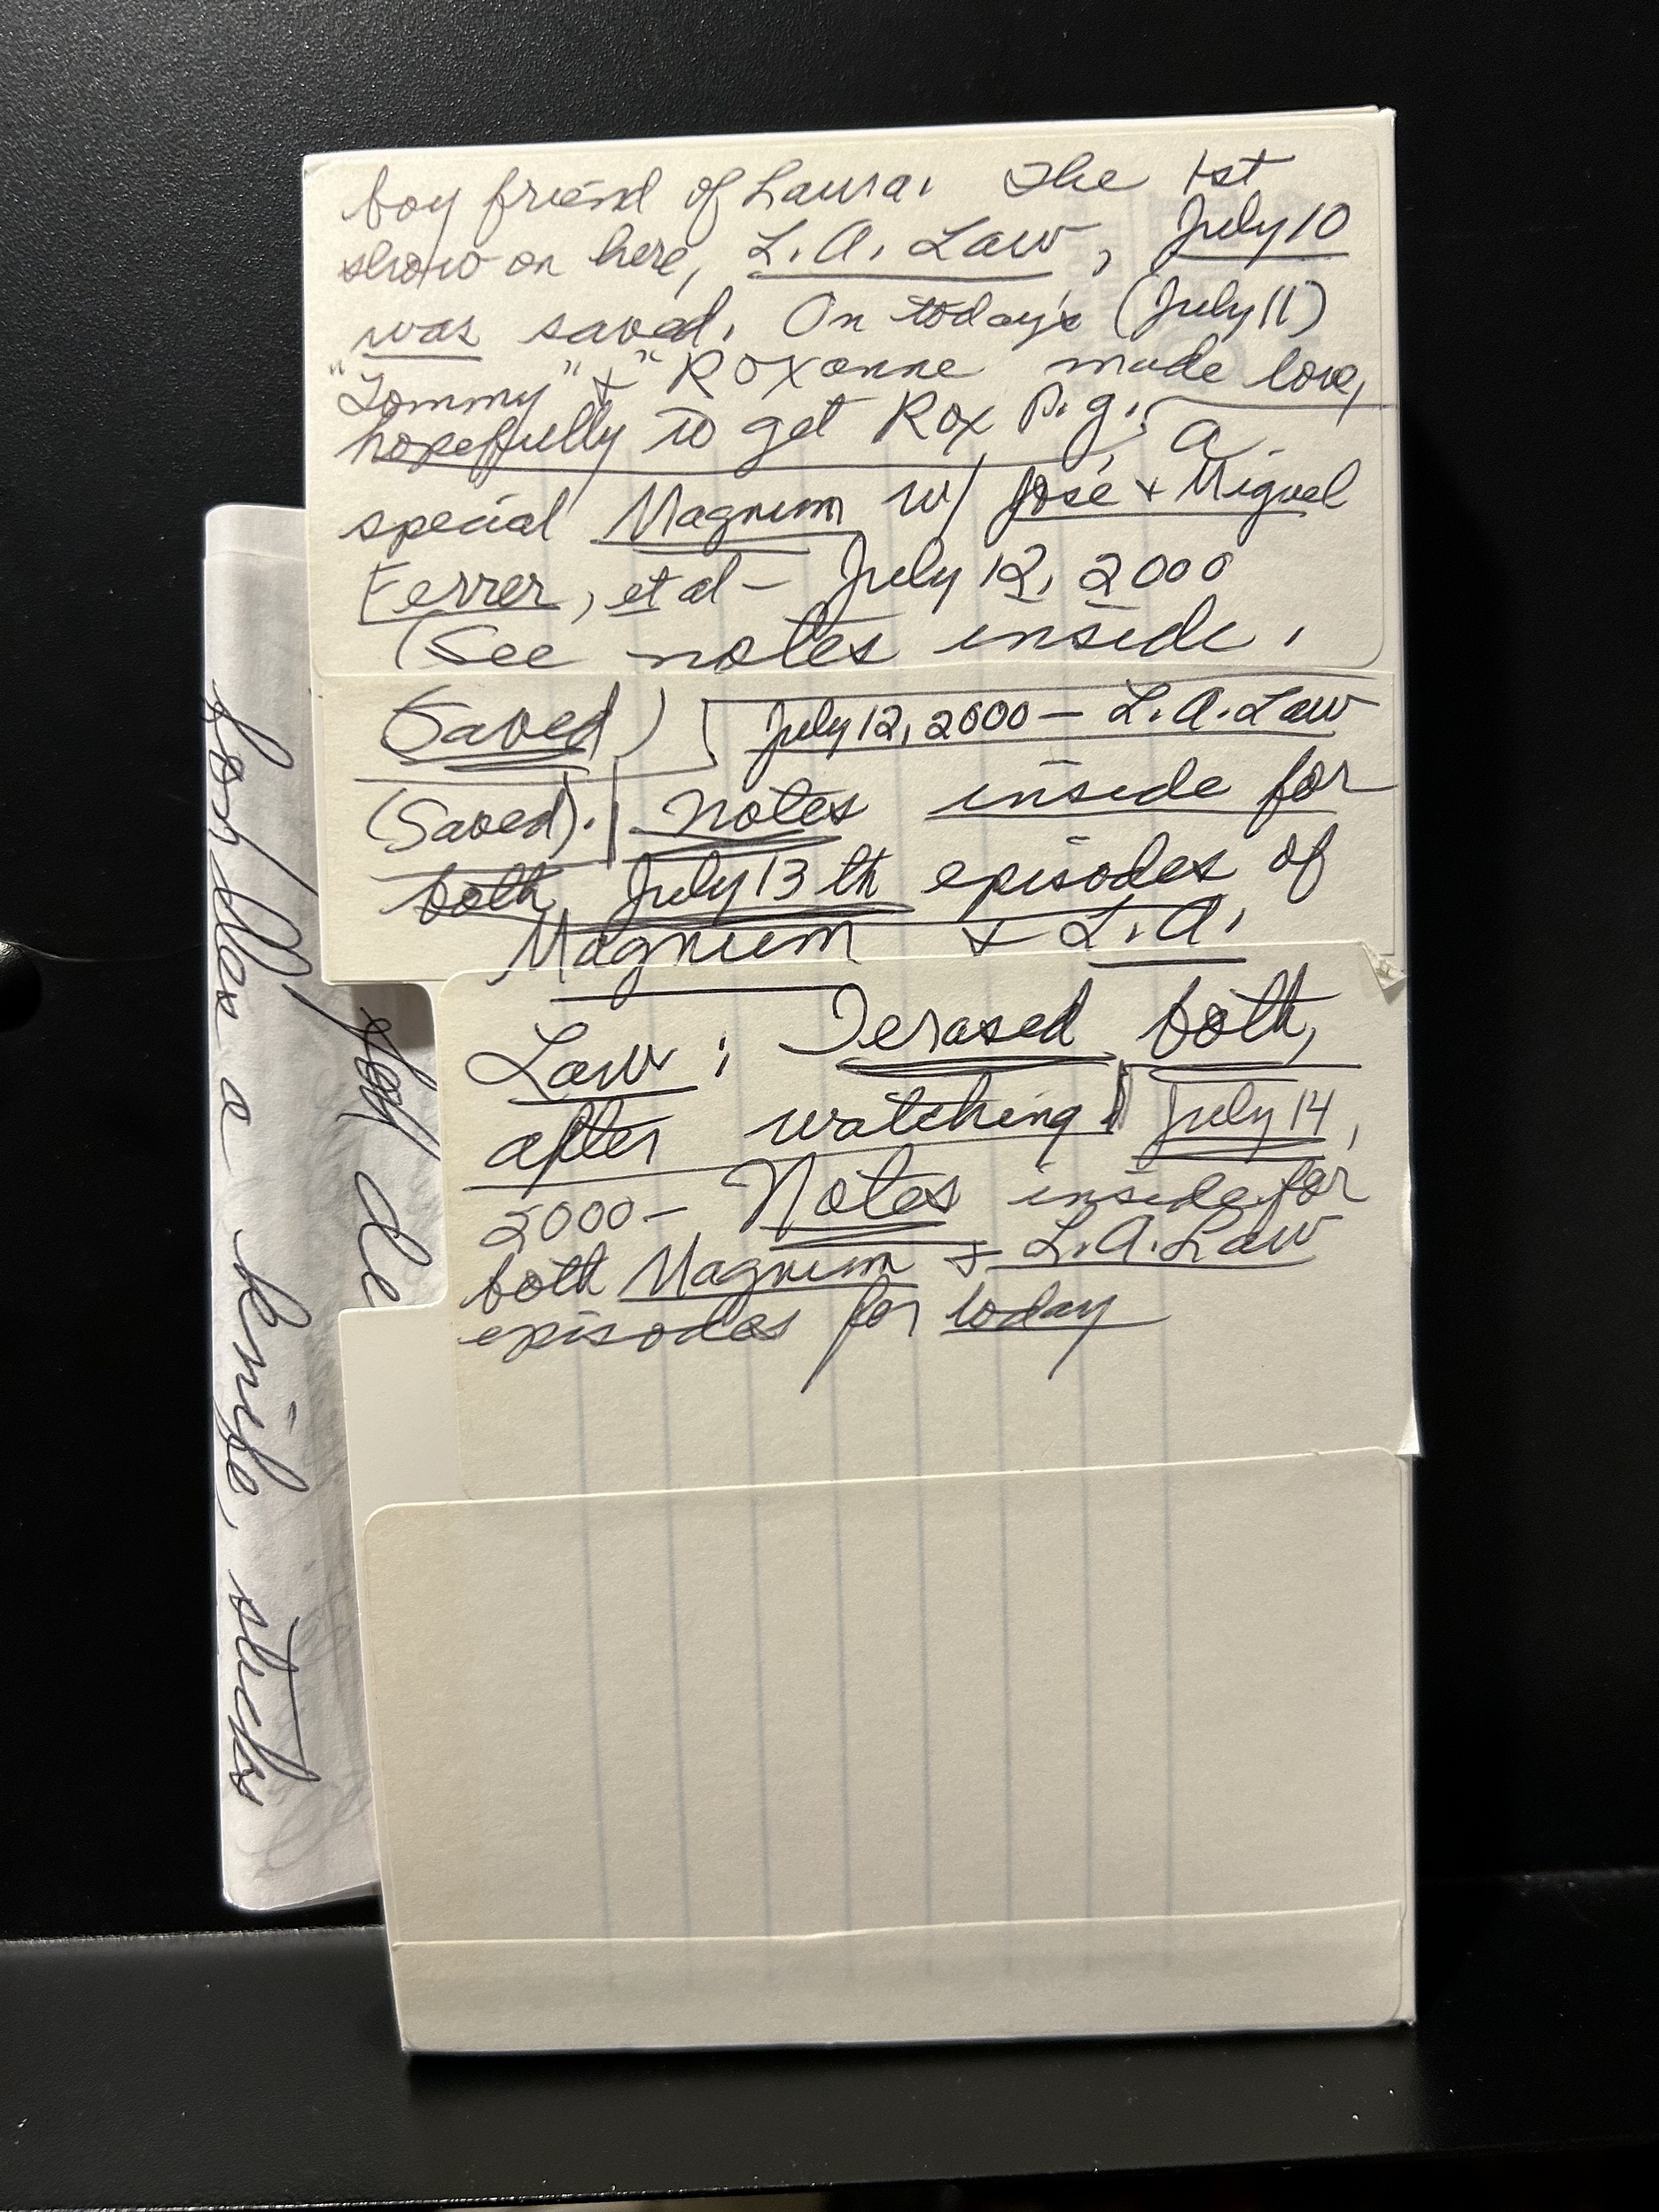 boy friend of Laura. The 1st
show on here, L.A. Law, July 10
was saved. On today's (July 11)
"Tommy" & "Roxanne made love,
hopefully to get Rox P.g.; a
special Magnum w/ José & Miguel
Ferrer, et al - July 12, 2000
(See notes inside.
(Saved) July 12, 2000 - L.A. Law
(Saved). Notes inside for
both July 13th episodes of
Magnum & L.A.
Law; I erased both,
after watching July 14,
2000 - Notes inside for
both Magnum & L.A. Law
episodes for today
has a knife, sticks
de